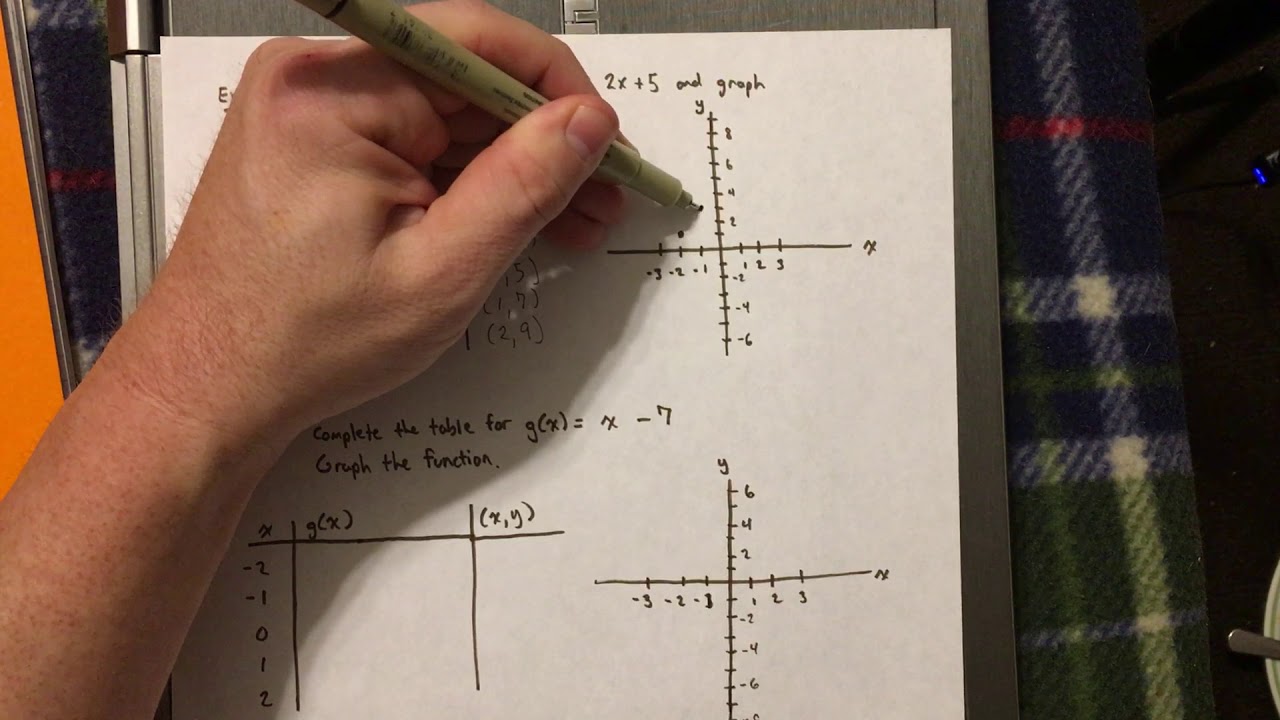 2x+5 and graph
y
8
6
4
2
x
-3 -2 -1 1 2 3
-2
-4
-6
, 5)
(1, 7)
(2, 9)
Complete the table for g(x) = x - 7
Graph the function.
x g(x) (x, y)
-2
-1
0
1
2
y
6
4
2
x
-3 -2 -1 1 2 3
-2
-4
-6